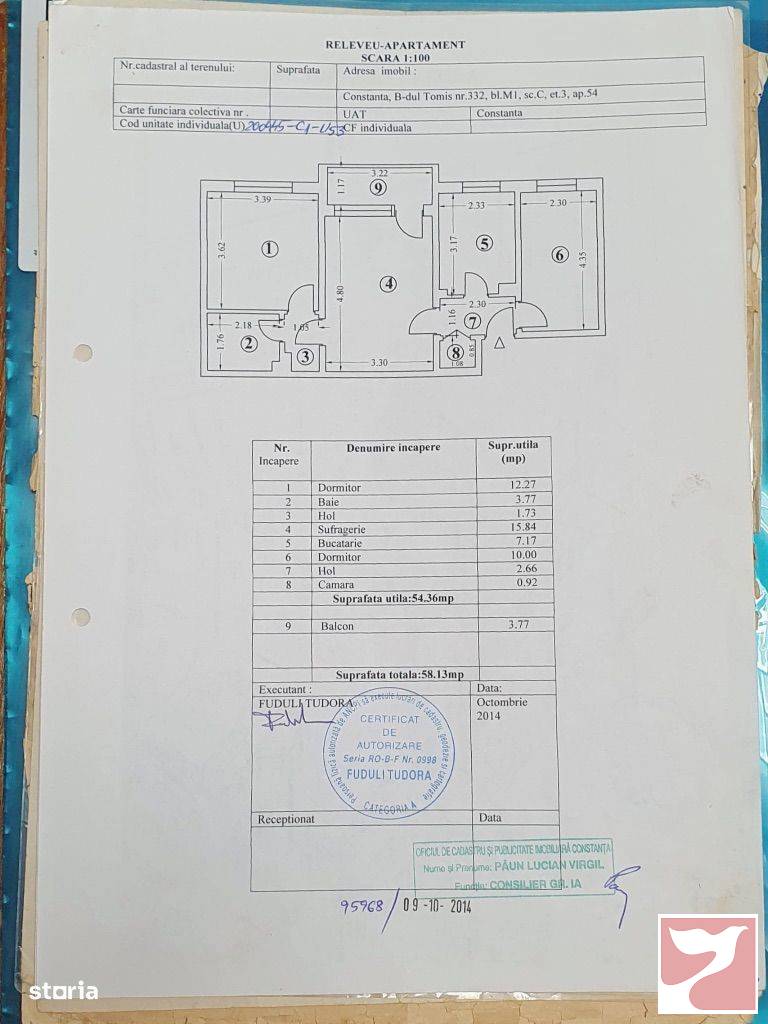 RELEVEU-APARTAMENT
SCARA 1:100
Nr.cadastral al terenului: Suprafata Adresa imobil :
Constanta, B-dul Tomis nr.332, bl.M1, sc.C, et.3, ap.54
Carte funciara colectiva nr . UAT Constanta
Cod unitate individuala(U) 200445-C1-U53 CF individuala
3.22
1.17
9
3.39
2.33
2.30
3.62
1
3.17
5
6
4.35
4.80
4
2.30
2.18
1.05
1.16
7
1.76
2
3
8
0.85
1.08
3.30
Nr. Incapere Denumire incapere Supr.utila (mp)
1 Dormitor 12.27
2 Baie 3.77
3 Hol 1.73
4 Sufragerie 15.84
5 Bucatarie 7.17
6 Dormitor 10.00
7 Hol 2.66
8 Camara 0.92
Suprafata utila:54.36mp
9 Balcon 3.77
Suprafata totala:58.13mp
Executant : Data:
FUDULI TUDORA Octombrie
2014
Persoană fizică autorizată de ANCPI să execute lucrări de cadastru, geodezie și cartografie
CERTIFICAT
DE
AUTORIZARE
Seria RO-B-F Nr. 0998
FUDULI TUDORA
CATEGORIA A
Receptionat Data
OFICIUL DE CADASTRU ȘI PUBLICITATE IMOBILIARĂ CONSTANȚA
Nume și Prenume: PĂUN LUCIAN VIRGIL
Funcția: CONSILIER GR. IA
95968/ 09-10-2014
storia